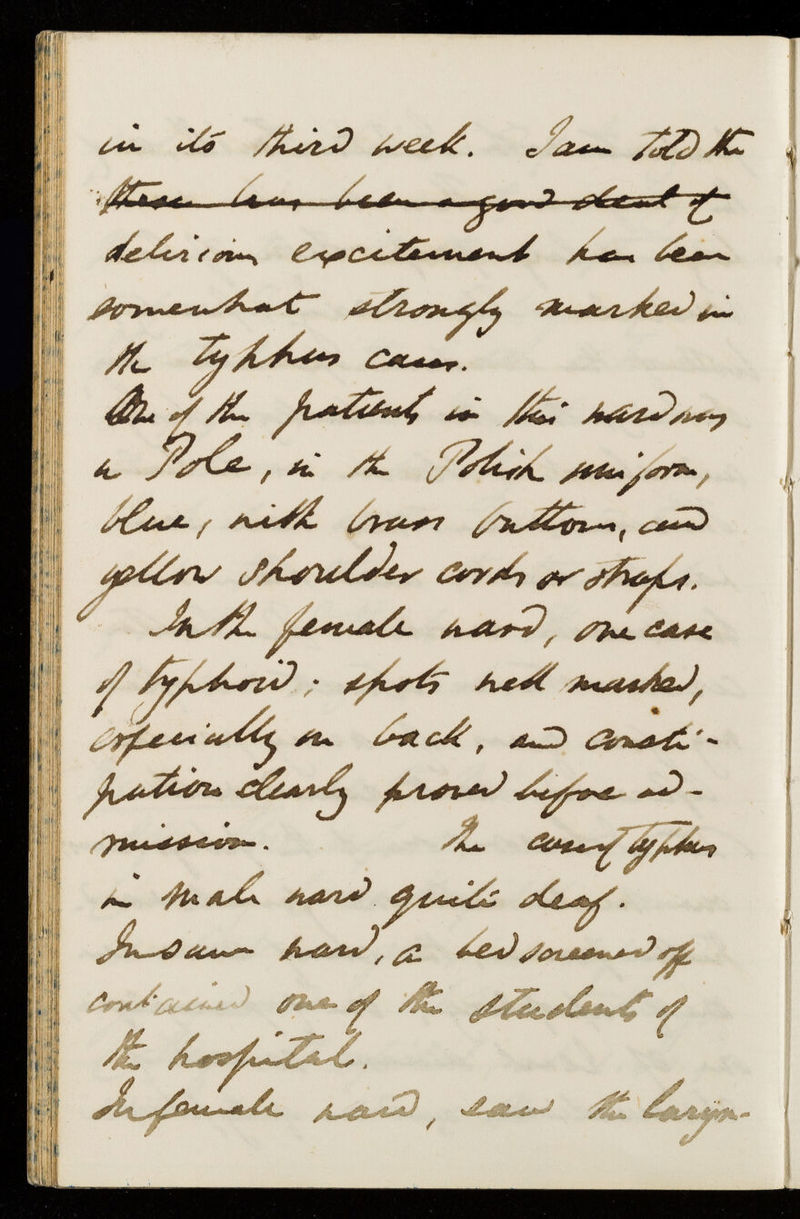 in its third week. I am told the
there has been a good deal of
delirious excitement has been
somewhat strongly marked in
the typhus cases.
One of the patients in this ward was
a Pole, in the Polish uniform,
blue, with brass buttons, and
yellow shoulder cords or straps.
In the female ward, one case
of typhoid; spots well marked,
especially on back, and consti-
pation clearly proved before ad-
mission. The case of typhus
in male ward quite deaf.
In same ward, a bed screened off
contained one of the students of
the hospital.
In female ward, saw the laryn-